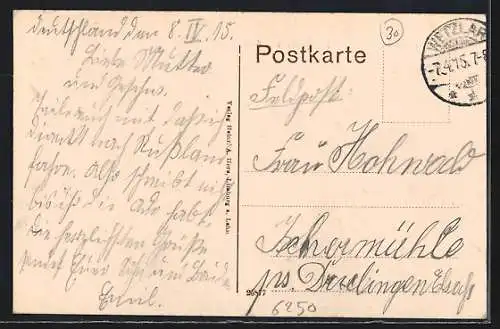 Deutschland den 8. IV. 15.
Liebe Mutter
und Geschw.
mit daß ich
direkt nach Rußland
fahre. Also schreibt nicht
bis ihr die Adr. habt.
Die herzlichsten Grüße
Euer Sohn und Brude
Emil.
Verlag Heinr. A. Herz, Limburg a. Lahn.
30
Postkarte
Feldpost.
WETZLAR
7.4.15.7-8
Frau Hohwald
Ischermühle
ps. Drulingen Elsaß
26 37
6250